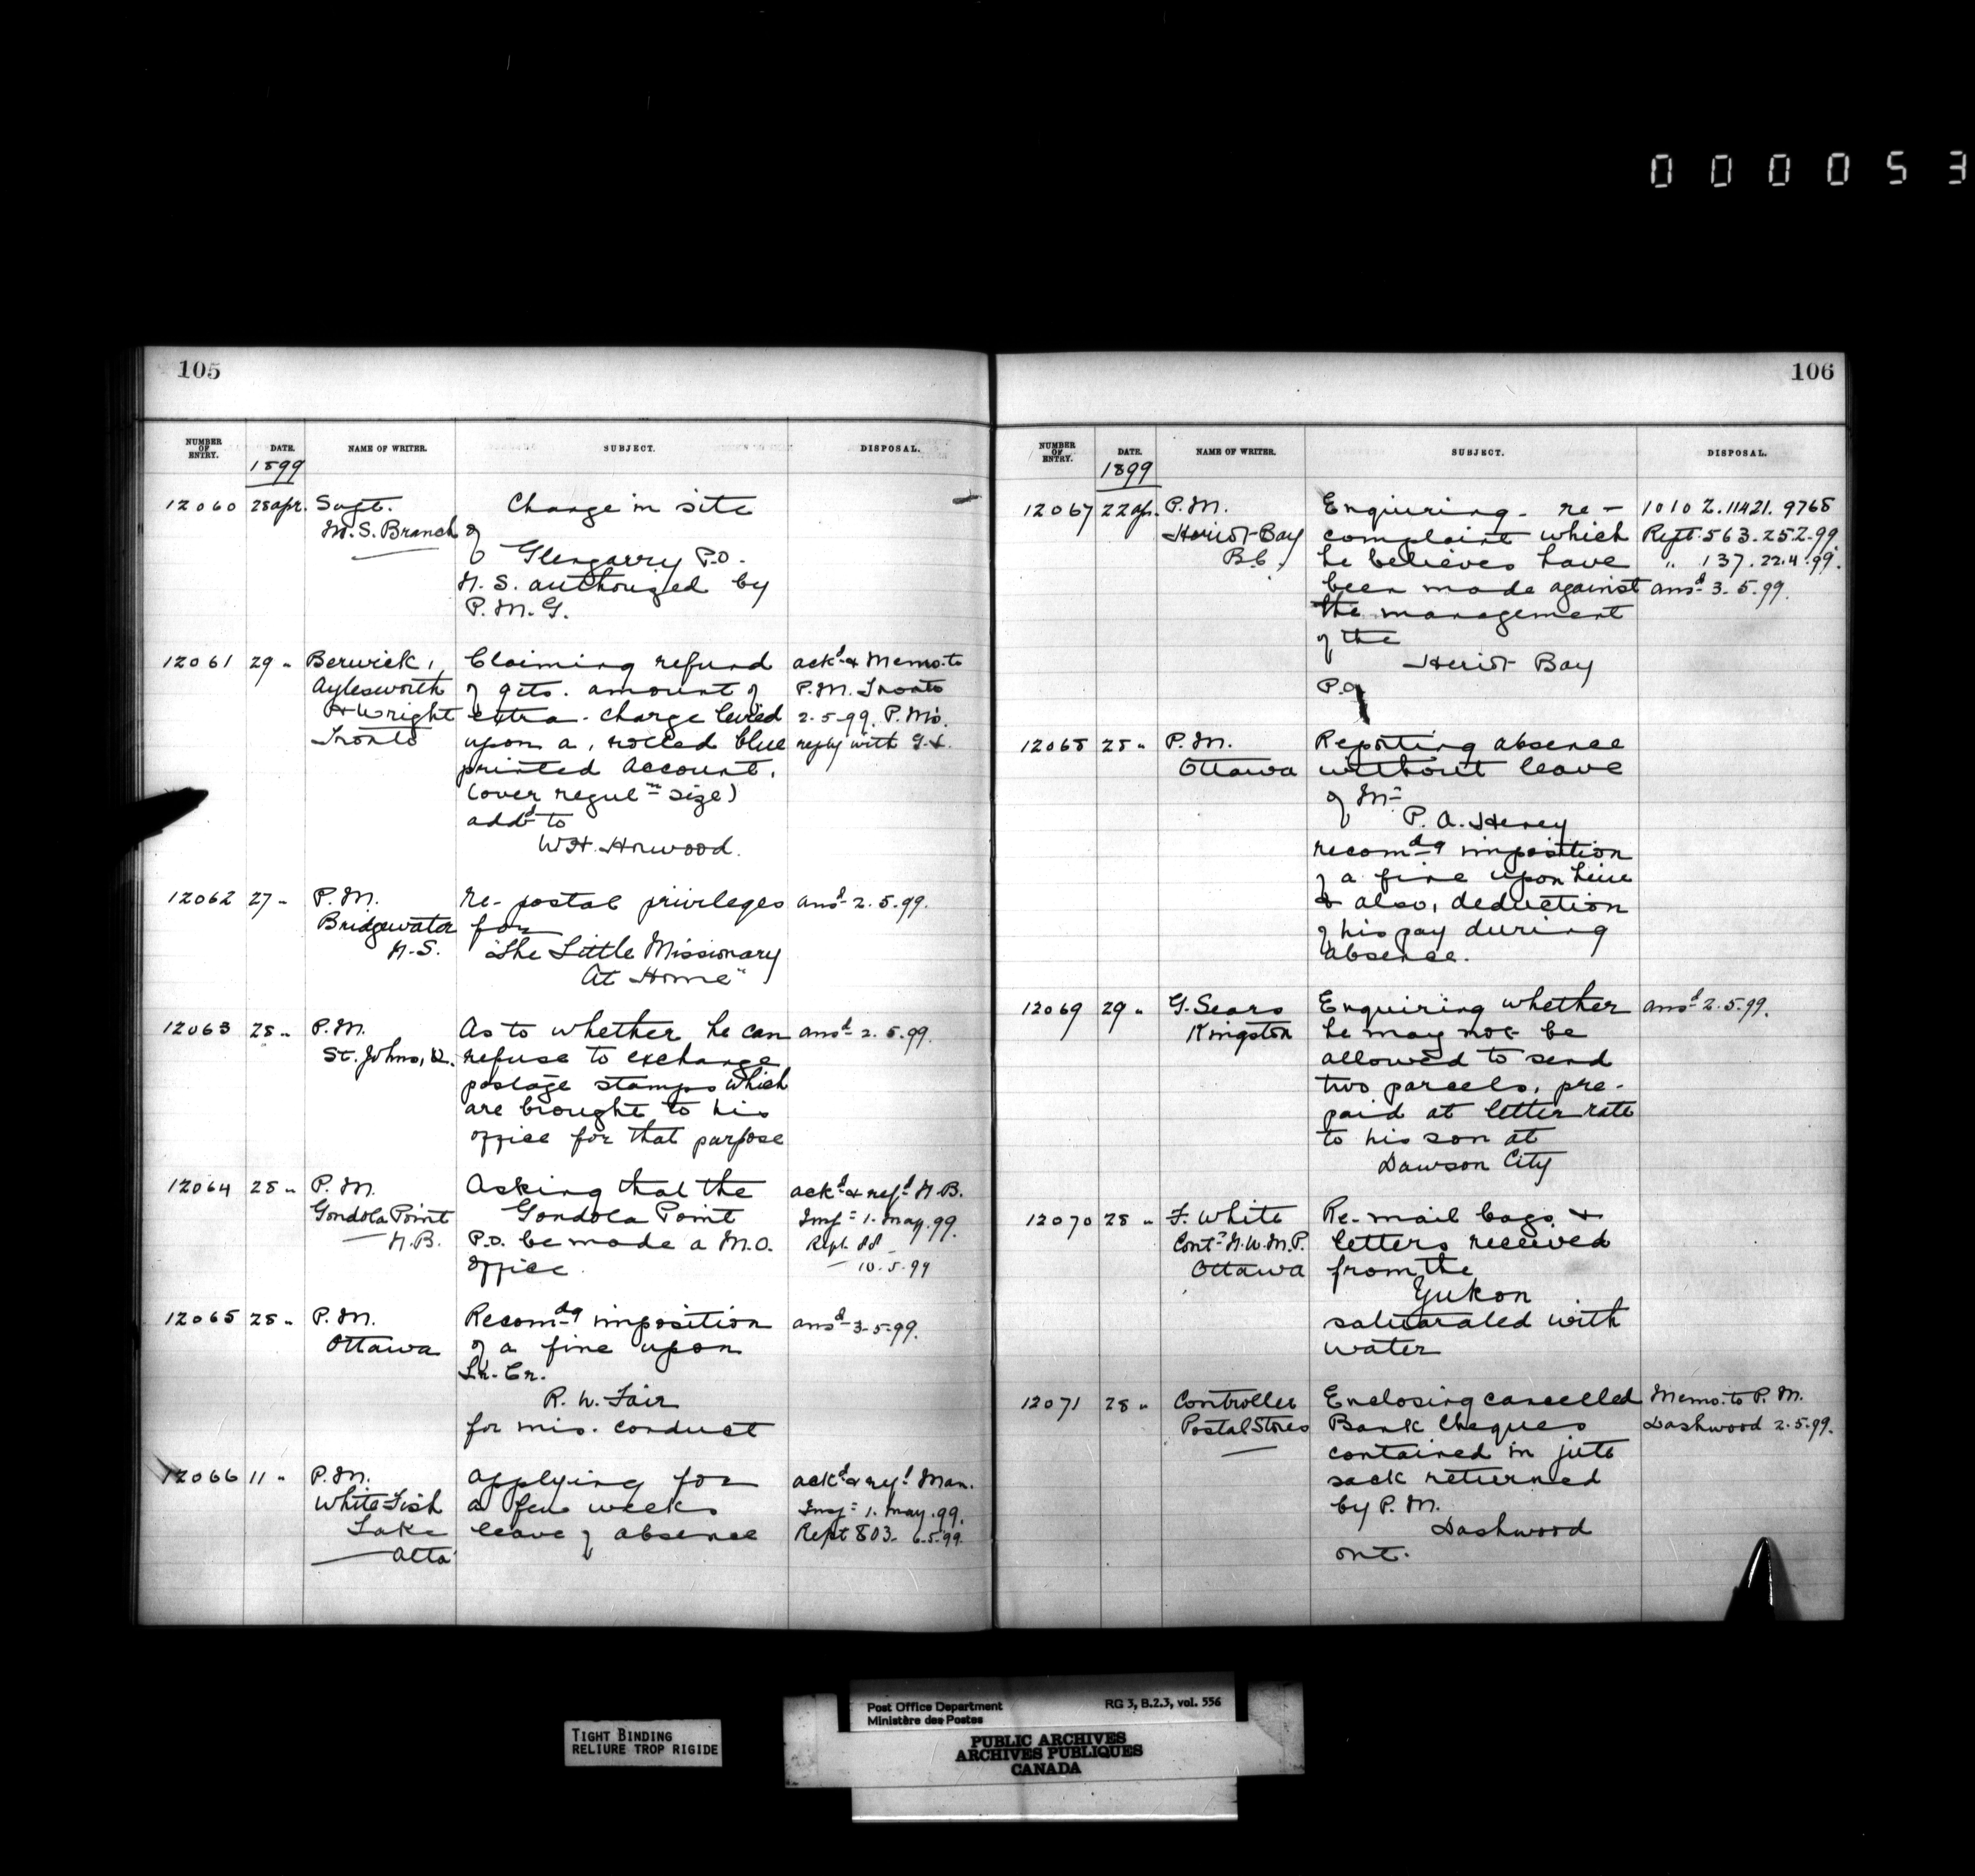 000053
105
NUMBER OF ENTRY. DATE. NAME OF WRITER. SUBJECT. DISPOSAL.
1899
12060 28 Apr. Supt. Change in site
M.S. Branch of
Glengarry P.O.
N.S. authorized by
P.M.G.
12061 29 " Berwick, Claiming refund ackd & Memo. to
Aylesworth of 9cts. amount of P.M. Toronto
& Wright extra-charge levied 2.5.99. P.M's.
Toronto upon a, rolled blue reply with
printed account,
(over reguln size)
addd to
W.H. Horwood.
12062 27 " P.M. Re- postal privileges ansd 2.5.99.
Bridgewater for
N.S. "The Little Missionary
At Home"
12063 28 " P.M. As to whether he can ansd 2.5.99.
St. Johns, Q. refuse to exchange
postage stamps which
are brought to his
office for that purpose
12064 28 " P.M. Asking that the ackd & refd N.B.
Gondola Point Gondola Point Insp. 1. May. 99.
N.B. P.O. be made a M.O. Rept. 88
office. 10.5.99
12065 28 " P.M. Recomdg imposition ansd 3-5-99.
Ottawa of a fine upon
Lr. Cr.
R. W. Fair
for mis. conduct
12066 11 " P.M. applying for ackd & refd Man.
White Fish a few weeks Insp. 1. May. 99.
Lake leave of absence Rept 803. 6.5.99.
Alta
106
NUMBER OF ENTRY. DATE. NAME OF WRITER. SUBJECT. DISPOSAL.
1899
12067 22 Ap. P.M. Enquiring - re - 1010 Z. 11421. 9768
Heriot-Bay complaint which Rept. 563. 25.2.99
B.C. he believes have " 137. 22.4.99.
been made against ansd 3.5.99.
the management
of the
Heriot Bay
P.O.
12068 28 " P.M. Reporting absence
Ottawa without leave
of Mr
P. A. Heney
recomdg imposition
of a fine upon him
& also, deduction
of his pay during
absence.
12069 29 " G. Sears Enquiring whether ansd 2.5.99.
Kingston he may not be
allowed to send
two parcels, pre-
paid at letter rate
to his son at
Dawson City
12070 28 " F. White Re-mail bags, &
Contr N.W.M.P. letters received
Ottawa from the
Yukon
saturated with
water
12071 28 " Controller Enclosing cancelled Memo. to P.M.
Postal Stores Bank Cheques Dashwood 2.5.99.
contained in jute
sack returned
by P.M.
Dashwood
Ont.
TIGHT BINDING
RELIURE TROP RIGIDE
Post Office Department RG 3, B.2.3, vol. 556
Ministère des Postes
PUBLIC ARCHIVES
ARCHIVES PUBLIQUES
CANADA